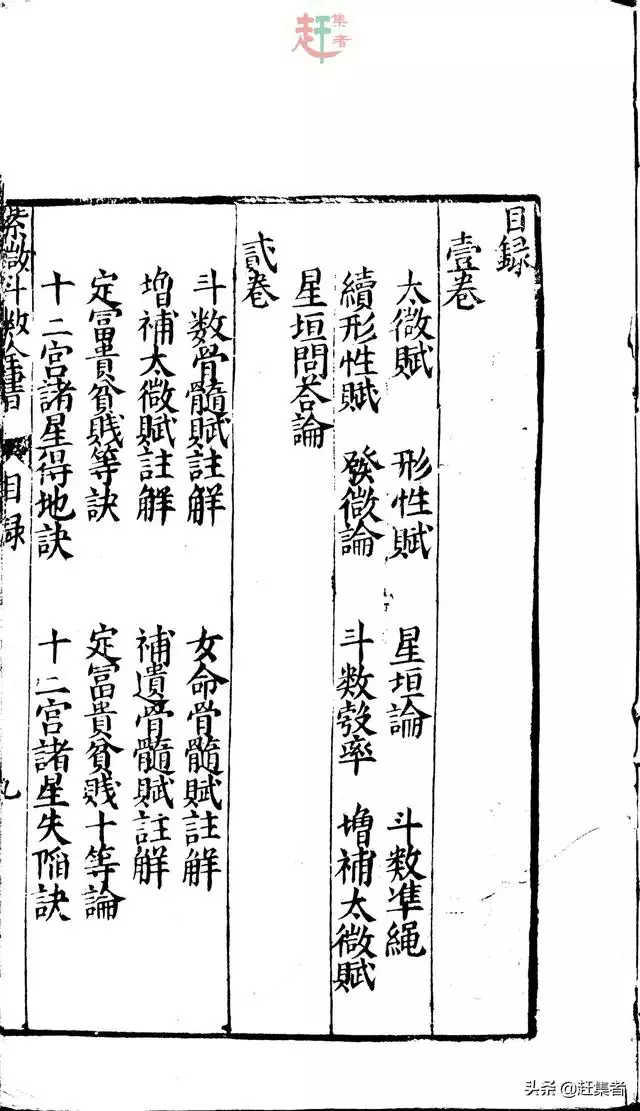 赶集者
目録
壹卷
太微賦 形性賦 星垣論 斗数準繩
續形性賦 發微論 斗数彀率 增補太微賦
星垣問荅論
貳卷
斗數骨髓賦註解 女命骨髓賦註解
增補太微賦註解 補遺骨髓賦註解
定冨貴貧賤等訣 定冨貴貧賤十等論
十二宮諸星得地訣 十二宮諸星失陷訣
紫微斗数全書 目録 九
头条 @赶集者